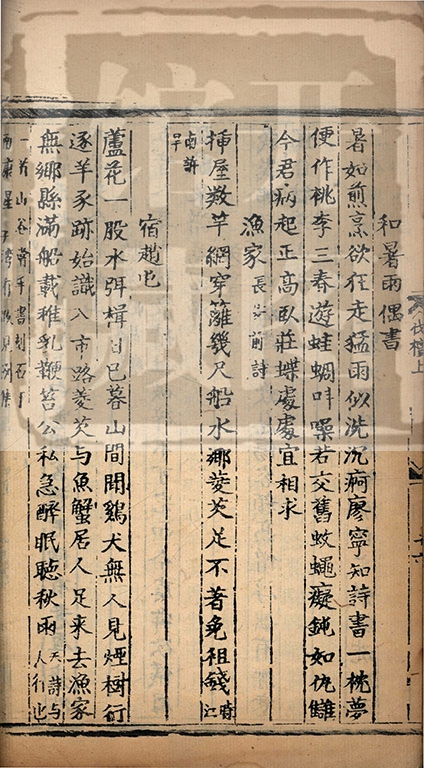 和暑雨偶書
暑如煎烹欲狂走猛雨似洗沉痾廖寧知詩書一枕夢
便作桃李三春遊蛙蜩叫噪若交舊蚊蠅癡鈍如仇讎
今君病起正高臥莊蝶處處宜相求
漁家
長谷前詩
挿屋数竿網穿籬幾尺船水鄉菱芡足不著免租錢
宿趙屯
蘆花一股水弭楫日已暮山間聞鷄犬無人見煙樹行
逐羊豕跡始識入市路菱芡与魚蟹居人足來去漁家
無鄉縣滿船載稚乳鞭笞公私急醉眠聽秋雨
天詩与
人行也
山谷嘗手書刻石于